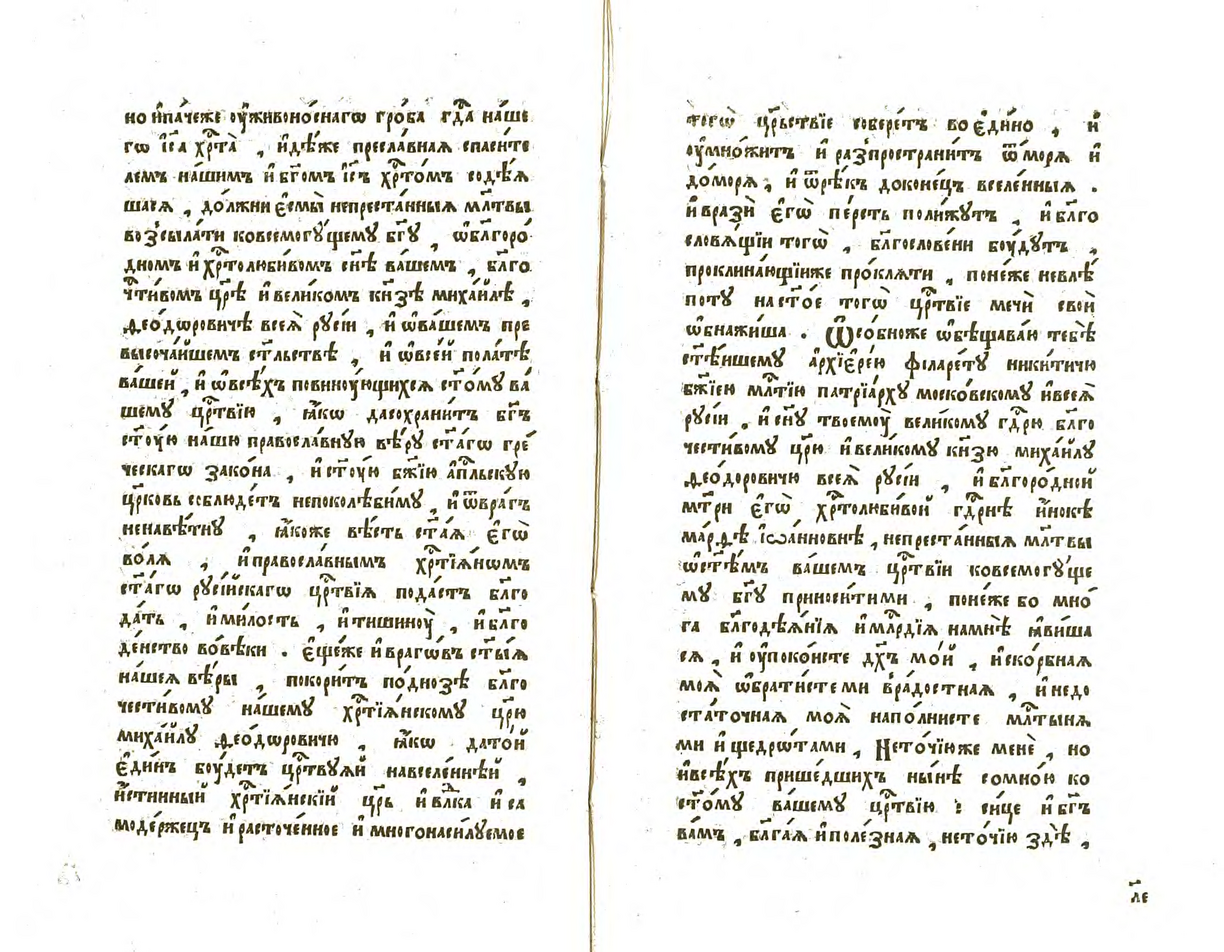 но ѝпа́чеже ᲂу҆живоно́снагѡ гро́ба гдⷭ҇а на́ше
гѡ і҆са хрⷭ҇та̀ , и҆дѣ́же пресла́вная спаси́те
лемъ на́шимъ и҆ бг҃омъ і҆с҃ъ хрⷭ҇то́мъ содѣ́ѧ
шаѧ , до́лжни є҆смы̀ непреста́нныѧ мл҃твы
возсыла́ти ковсемогꙋ́щемꙋ бг҃ꙋ , ѡ҆блг҃оро́
дномъ и҆ хрⷭ҇толюби́вомъ сн҃ѣ ва́шемъ , блг҃о
чти́вомъ цр҃ѣ и҆ вели́комъ кн҃зѣ миха́илѣ ,
ѳео́дѡровичѣ всеѧ̀ рꙋсі́и , и҆ ѡ҆ва́шемъ пре
высоча́йшемъ ст҃льствѣ , и҆ ѡ҆всѐй пола́тѣ
ва́шей , и҆ ѡ҆всѣ́хъ повинꙋ́ющихсѧ ст҃о́мꙋ ва́
шемꙋ црⷭ҇твїю , ꙗ҆́кѡ дасохрани́тъ бг҃ъ
ст҃ꙋ́ю на́шю правосла́внꙋю вѣ́рꙋ ст҃а́гѡ гре́
ческагѡ зако́на , и҆ ст҃ꙋ́ю бж҃їю а҆пⷭ҇льскꙋю
цр҃ковь соблюде́тъ непоколѣби́мꙋ , и҆ ѿвра́гъ
ненавѣ́тнꙋ , ꙗ҆́коже вѣ́сть ст҃а́ѧ є҆гѡ̀
во́лѧ , и҆ правосла́внымъ хрⷭ҇тїѧ́нѡмъ
ст҃а́гѡ рꙋсі́йскагѡ црⷭ҇твїѧ пода́стъ блг҃о
да́ть , и҆ ми́лость , и҆ тишинꙋ̀ , и҆ блг҃о
де́нство во́вѣки . є҆ще́же и҆ врагѡ́въ ст҃ы́ѧ
на́шеѧ вѣ́ры , покори́тъ по́днозѣ блг҃о
чести́вомꙋ на́шемꙋ хрⷭ҇тїѧ́нскомꙋ цр҃ю
миха́илꙋ ѳео́дѡровичю , ꙗ҆́кѡ дато́й
є҆ди́нъ бꙋ́детъ црⷭ҇твꙋѧй навселе́ннѣй ,
и҆́стинный хрⷭ҇тїѧ́нскїй цр҃ь и҆ влⷣка и҆ са
моде́ржецъ и҆ расточе́нное и҆ многонаси́лꙋемое
тогѡ̀ цр҃ьствїе собере́тъ во є҆ди́но , и҆
ᲂу҆мно́житъ и҆ разпространи́тъ ѿмо́рѧ и҆
до́морѧ , и҆ ѿрѣ́къ доконе́цъ вселе́нныѧ .
и҆ врази̂ є҆гѡ̀ пе́рсть поли́жꙋтъ , и҆ блг҃о
словѧ́щїи тогѡ̀ , бл҃гослове́ни бꙋ́дꙋтъ ,
проклина́ющїиже про́клѧти , поне́же невлѣ́
потꙋ̀ наст҃о́е тогѡ̀ црⷭ҇твїе мечѝ своѝ
ѡ҆бнажи́ша . Ѡ҆со́бноже ѡ҆бѣщава́ю тебѣ̀
ст҃ѣ́ишемꙋ а҆рхїере́ю філаре́тꙋ ники́тичю
бж҃їею мл҃тїю патрїа́рхꙋ моско́вскомꙋ и҆всеѧ̀
рꙋсі́и , и҆ сн҃ꙋ твоемꙋ̀ вели́комꙋ гдⷭ҇рю блг҃о
чести́вомꙋ цр҃ю и҆вели́комꙋ кн҃зю миха́илꙋ
ѳео́доровичю всеѧ̀ рꙋсі́и , и҆ блг҃оро́дной
мт҃ри є҆гѡ̀ хрⷭ҇толюби́вой гдⷭ҇рнѣ и҆́нокѣ
ма́рѳѣ і҆ѡа́нновнѣ , непреста́нныѧ мл҃твы
ѡ҆ст҃ѣ́мъ ва́шемъ црⷭ҇твїи ковсемогꙋ́ще
мꙋ бг҃ꙋ приноси́тими , поне́же бо мно́
га блг҃одѣѧ́нїѧ и҆млрⷭ҇дїѧ намнѣ̀ ꙗ҆ви́ша
сѧ , и҆ ᲂу҆поко́исте дх҃ъ мо́й , и҆ско́рбнаѧ
моѧ̀ ѡ҆брати́сте ми в̾ра́достнаѧ , и҆ недо
ста́точнаѧ моѧ̀ напо́лнисте мл҃тынѧ
ми и҆ щедрѡ́тами , Нето́чїюже менѐ , но
и҆всѣ́хъ прише́дшихъ ны́нѣ сомно́ю ко
ст҃о́мꙋ ва́шемꙋ црⷭ҇твїю : си́це и҆ бг҃ъ
ва́мъ , бл҃га́ѧ и҆ поле́знаѧ , нето́чїю здѣ̀ ,
л҃е